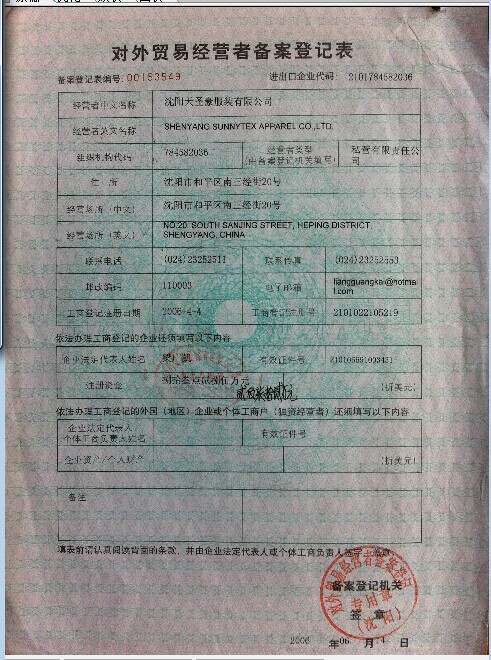 对外贸易经营者备案登记表
备案登记表编号: 00153549 进出口企业代码: 2101784582036
经营者中文名称 沈阳天圣豪服装有限公司
经营者英文名称 SHENYANG SUNNYTEX APPAREL CO.,LTD.
组织机构代码 784582036 经营者类型 (由备案登记机关填写) 私营有限责任公司
住 所 沈阳市和平区南三经街20号
经营场所（中文） 沈阳市和平区南三经街20号
经营场所（英文） NO.20. SOUTH SANJING STREET, HEPING DISTRICT,
SHENGYANG, CHINA
联系电话 (024)23252511 联系传真 (024)23252553
邮政编码 110003 电子邮箱 liangguangkai@hotmai
l.com
工商登记注册日期 2006-4-4 工商登记注册号 2101022105219
依法办理工商登记的企业还须填写以下内容
企业法定代表人姓名 梁广凯 有效证件号
注册资金 (折美元)
依法办理工商登记的外国（地区）企业或个体工商户（独资经营者）还须填写以下内容
企业法定代表人/
个体工商负责人姓名 有效证件号
企业资产/个人财产 (折美元)
备注
填表前请认真阅读背面的条款，并由企业法定代表人或个体工商负责人签字、盖章
备案登记机关
签 章
2006 年06 月 日